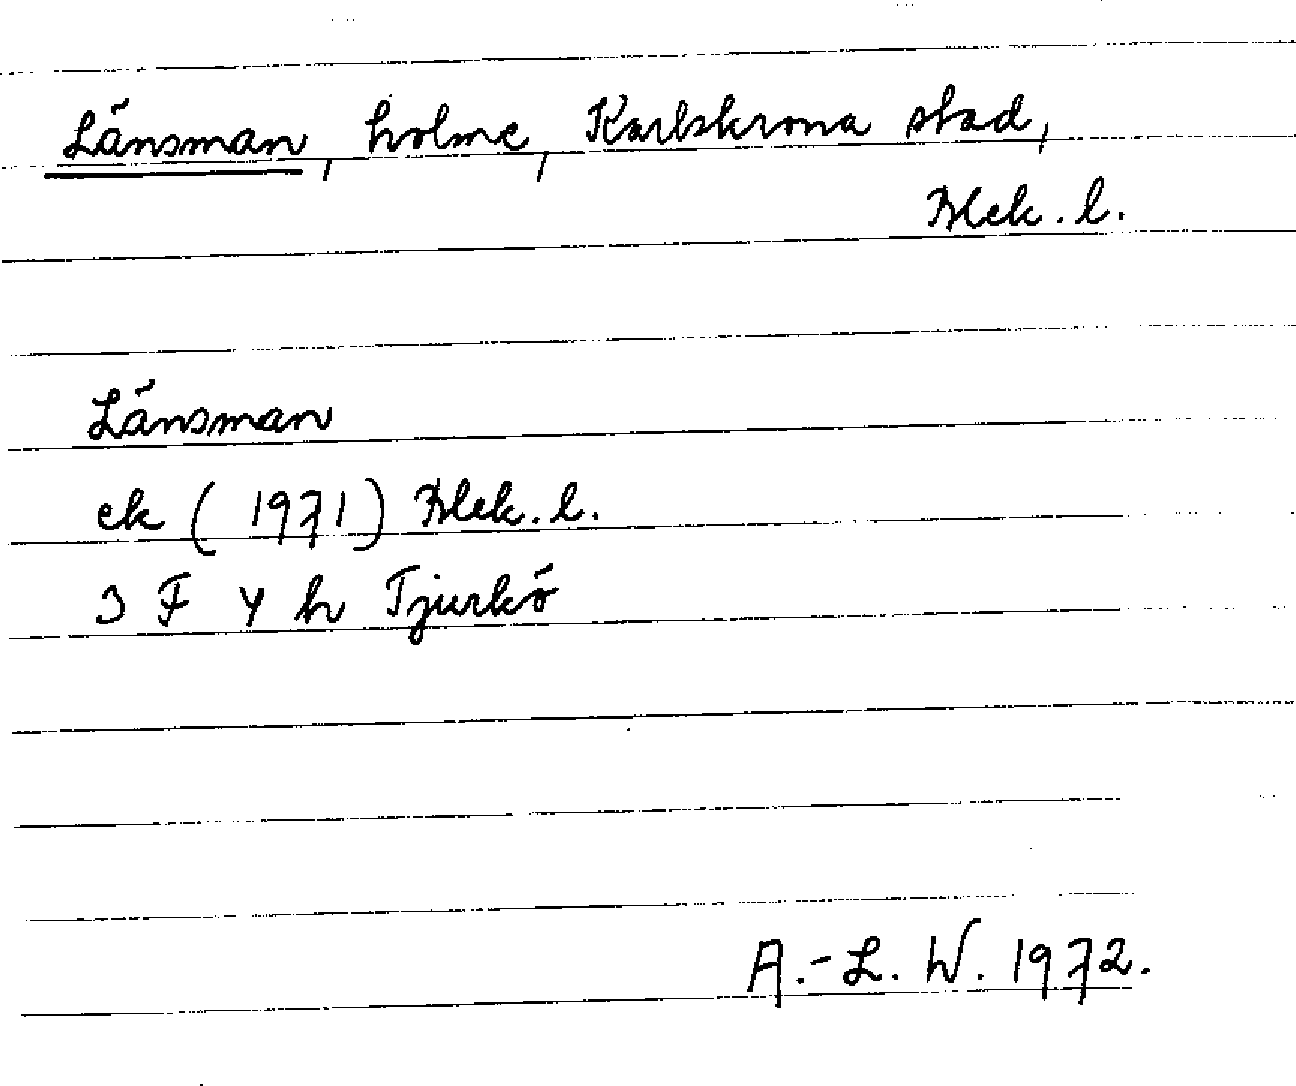 Länsman, holme, Karlskrona stad,
Blek. l.
Länsman
ek (1971) Blek. l.
3 F 4 h Tjurkö
A.-L. W. 1972.